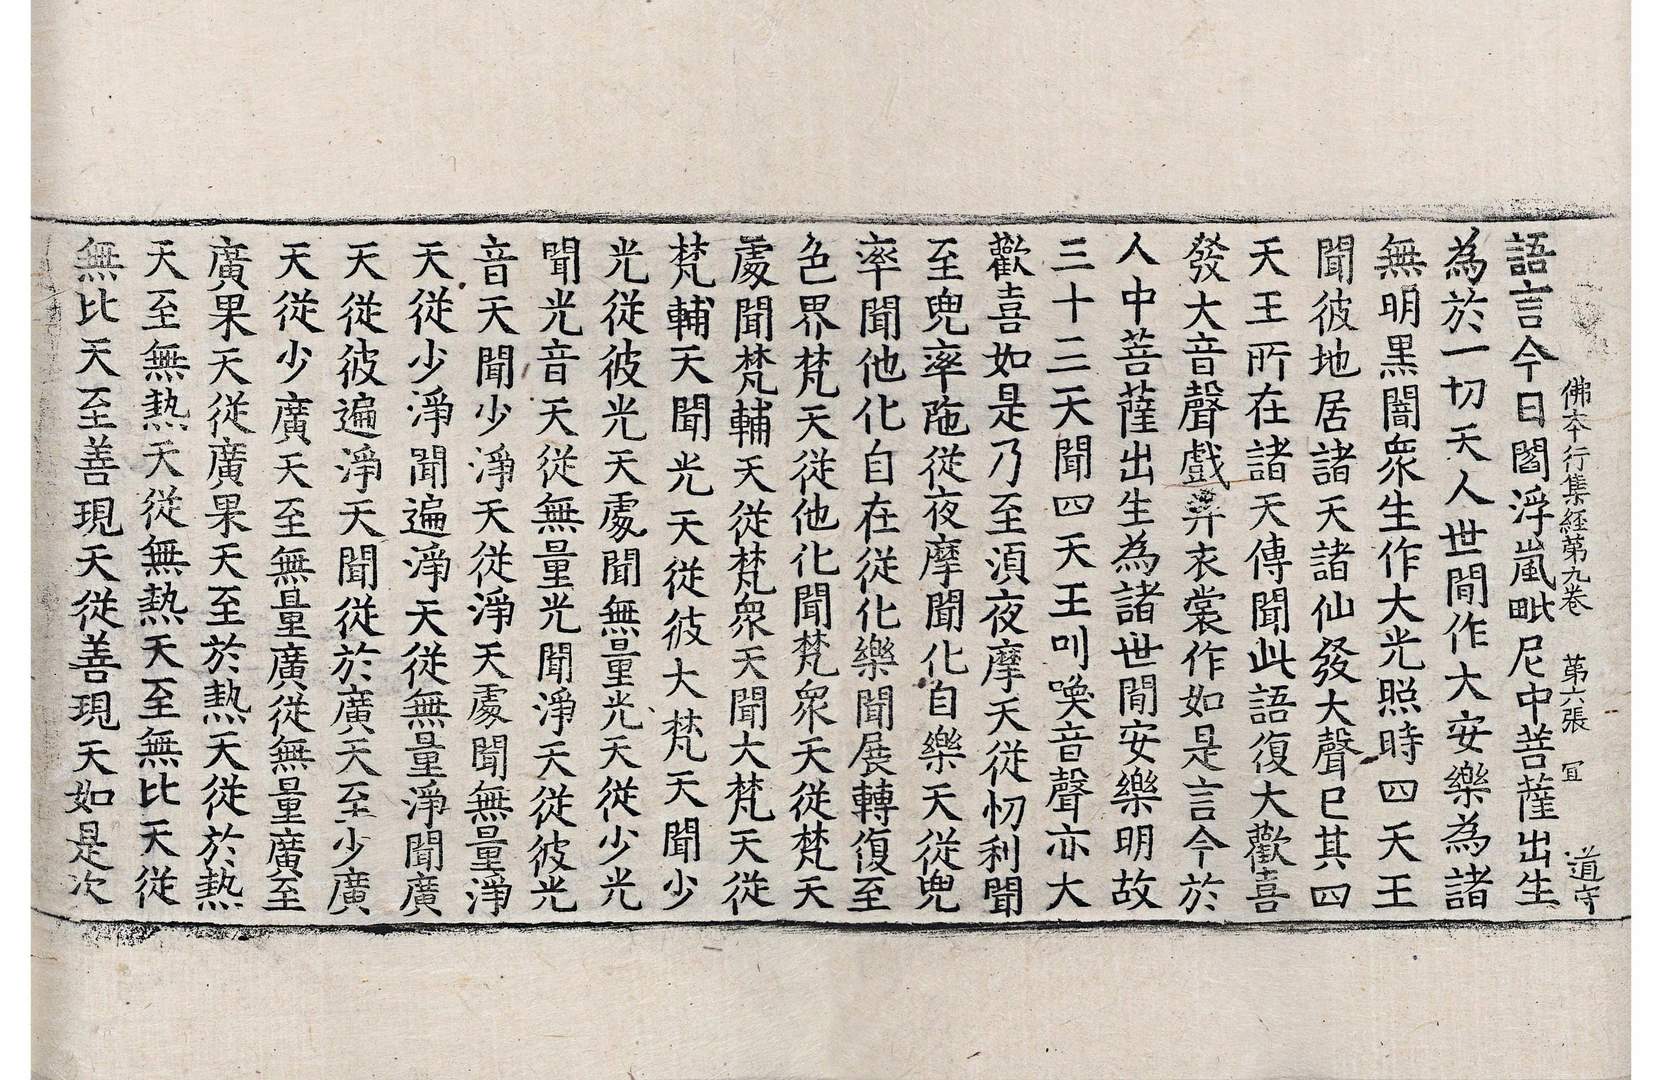 佛本行集経第九卷 第六張 冝 道守
語言今日閻浮嵐毗尼中菩薩出生
為於一切天人世間作大安樂為諸
無明黑闇衆生作大光照時四天王
聞彼地居諸天諸仙發大聲已其四
天王所在諸天傳聞此語復大歡喜
發大音聲戲弄衣裳作如是言今於
人中菩薩出生為諸世間安樂明故
三十三天聞四天王叫喚音聲亦大
歡喜如是乃至湏夜摩天從忉利聞
至兜率陁從夜摩聞化自樂天從兜
率聞他化自在從化樂聞展轉復至
色界梵天從他化聞梵衆天從梵天
處聞梵輔天從梵衆天聞大梵天從
梵輔天聞光天從彼大梵天聞少
光從彼光天處聞無量光天從少光
聞光音天從無量光聞淨天從彼光
音天聞少淨天從淨天處聞無量淨
天從少淨聞遍淨天從無量淨聞廣
天從彼遍淨天聞從於廣天至少廣
天從少廣天至無量廣從無量廣至
廣果天從廣果天至於熱天從於熱
天至無熱天從無熱天至無比天從
無比天至善現天從善現天如是次